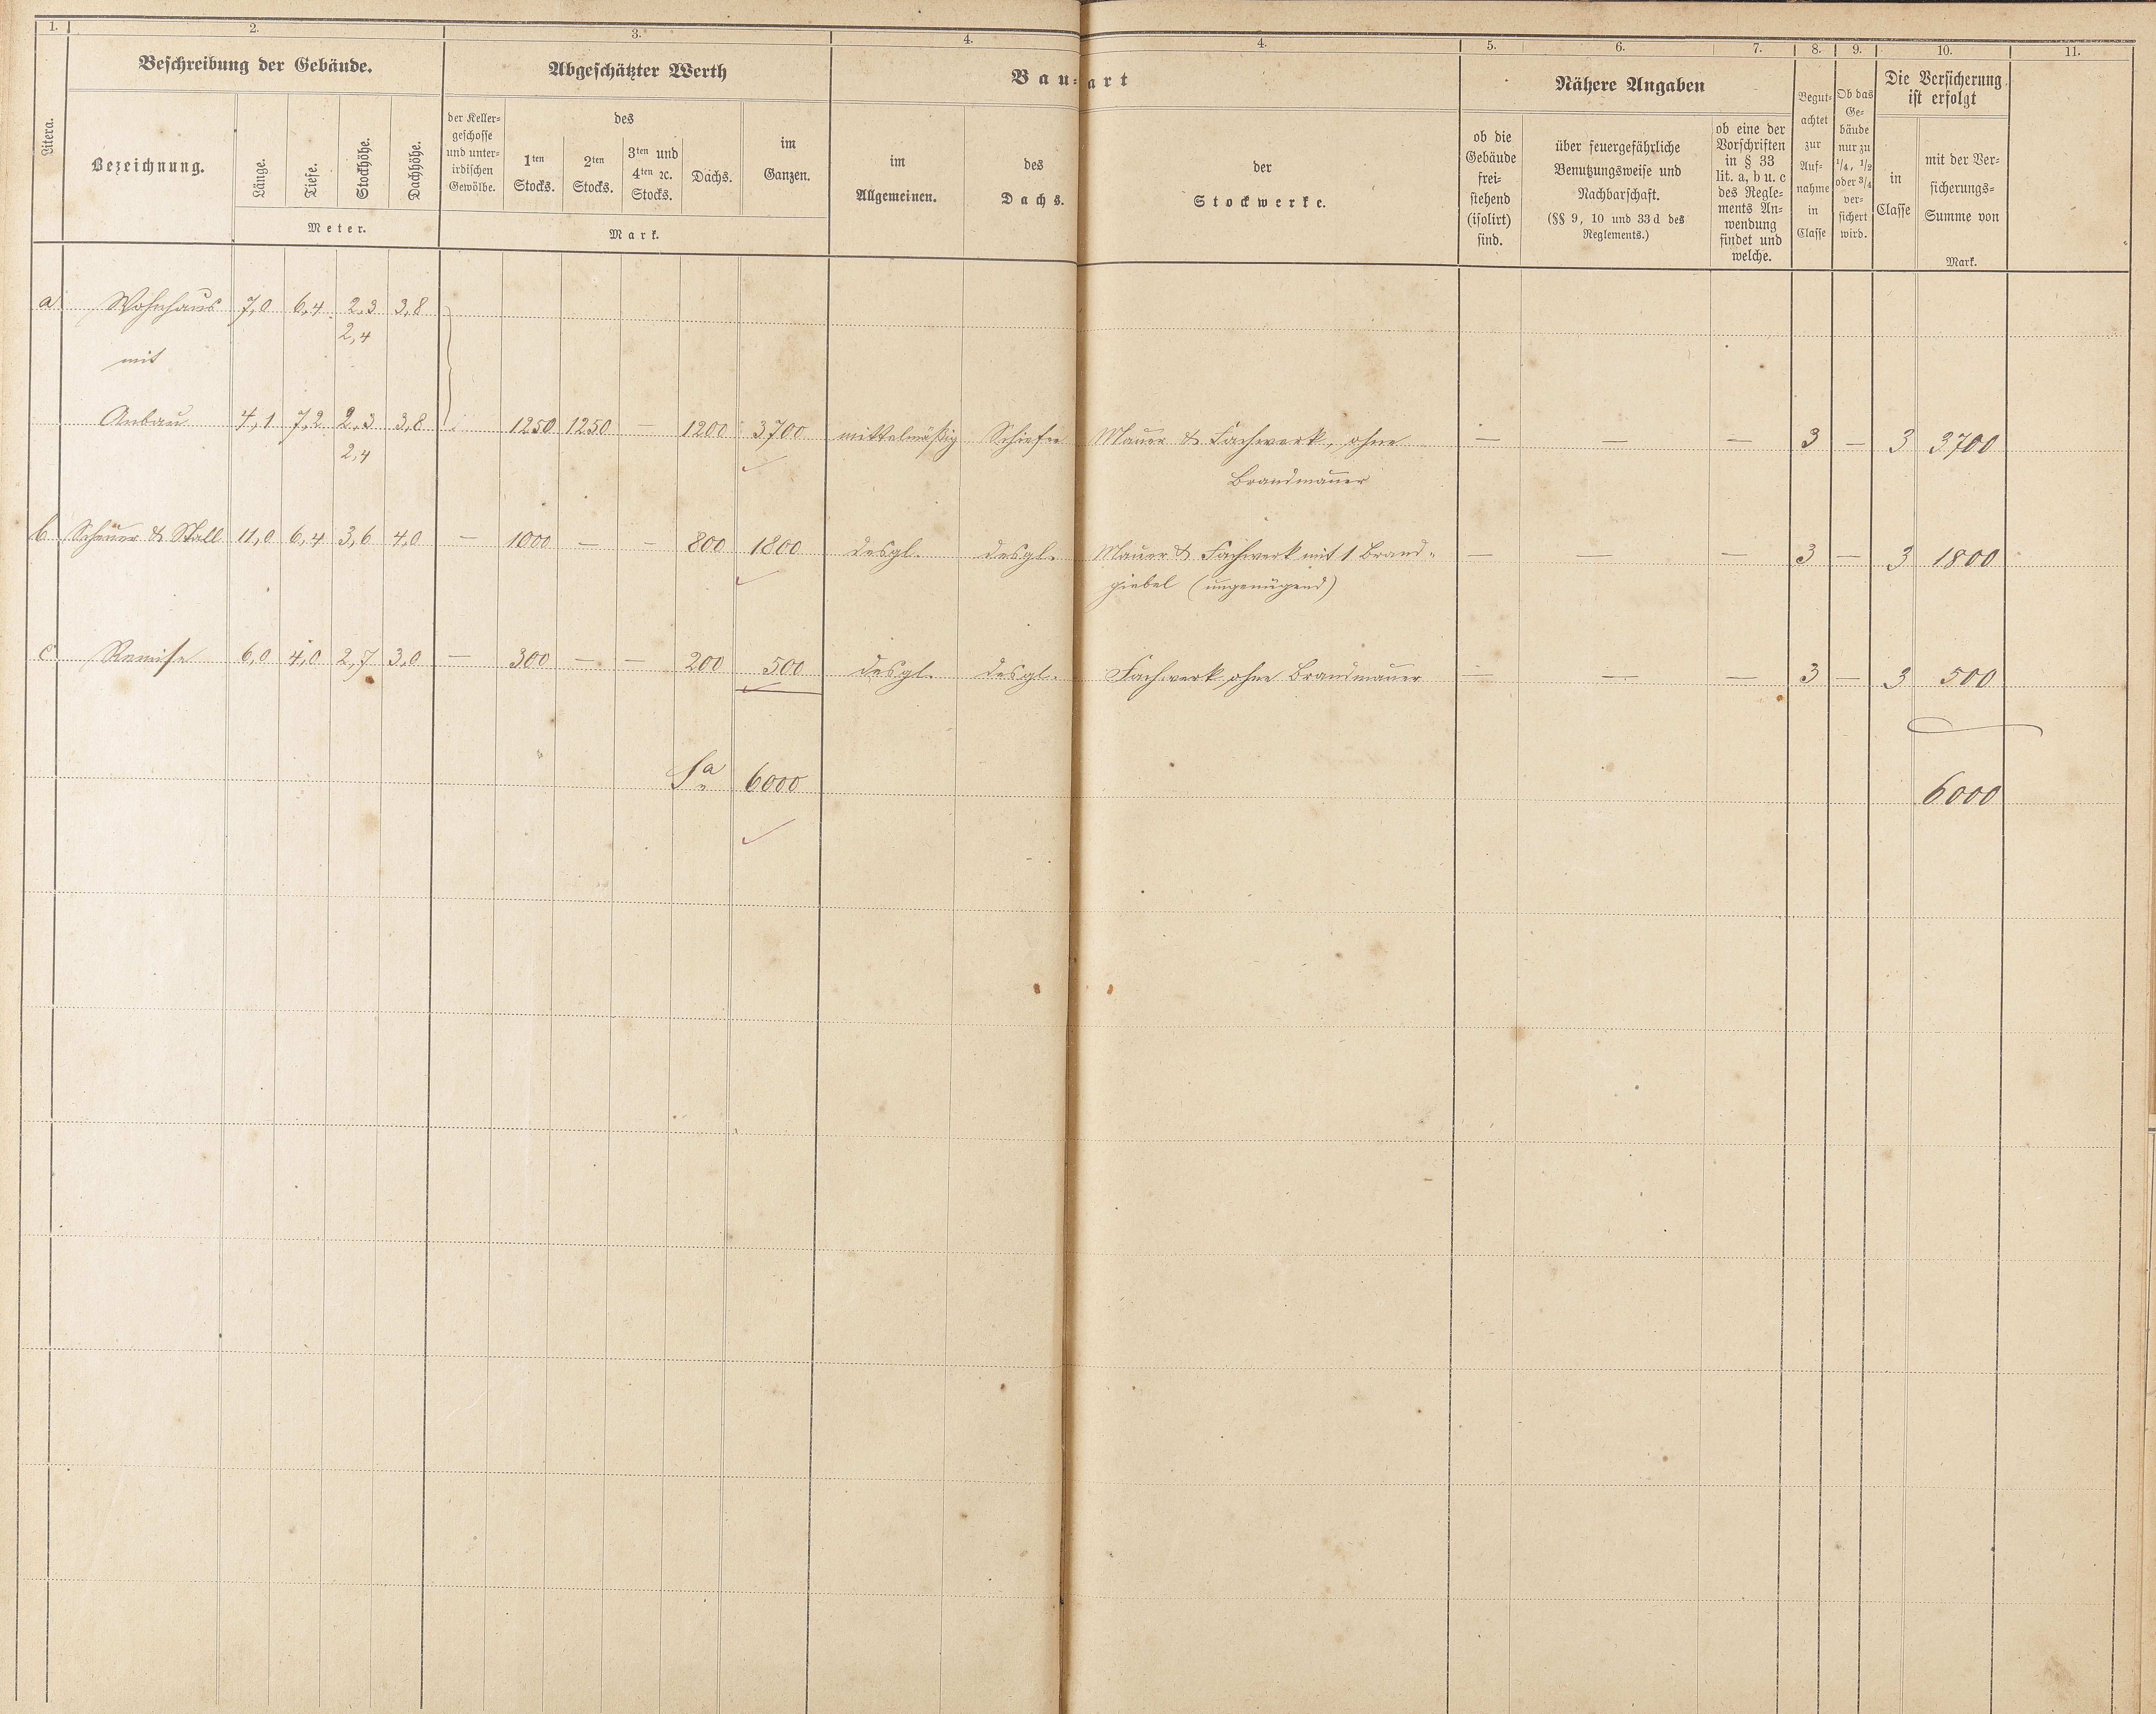 1. 2. 3. 4. 4. 5. 6. 7. 8. 9. 10. 11.
Litera.
Beschreibung der Gebäude.
Bezeichnung.
Länge.
Tiefe.
Stockhöhe.
Dachhöhe.
Meter.
Abgeschätzter Werth
der Keller-
geschosse
und unter-
irdischen
Gewölbe.
des
1ten
Stocks.
2ten
Stocks.
3ten und
4ten ꝛc.
Stocks.
Dachs.
im
Ganzen.
Mark.
Bau-art
im
Allgemeinen.
des
Dachs.
der
Stockwerke.
Nähere Angaben
ob die
Gebäude
frei-
stehend
(isolirt)
sind.
über feuergefährliche
Benutzungsweise und
Nachbarschaft.
(§§ 9, 10 und 33 d des
Reglements.)
ob eine der
Vorschriften
in § 33
lit. a, b u. c
des Regle-
ments An-
wendung
findet und
welche.
Begut-
achtet
zur
Auf-
nahme
in
Classe
Ob das
Ge-
bäude
nur zu
1/4, 1/2
oder 3/4
ver-
sichert
wird.
Die Versicherung
ist erfolgt
in
Classe
mit der Ver-
sicherungs-
Summe von
Mark.
a Wohnhaus 7,0 6,4 2,3 3,8
2,4
mit
Anbau 4,1 7,2 2,3 3,8 1250 1250 — 1200 3700 mittelmäßig Schiefer Mauer & Fachwerk, ohne — — — 3 — 3 3700
2,4 Brandmauer
b Scheuer & Stall 11,0 6,4 3,6 4,0 — 1000 — — 800 1800 desgl. desgl. Mauer & Fachwerk mit 1 Brand- — — — 3 — 3 1800
giebel (ungenügend)
c Remise 6,0 4,0 2,7 3,0 — 300 — — 200 500 desgl. desgl. Fachwerk, ohne Brandmauer — — — 3 — 3 500
Sa 6000 6000